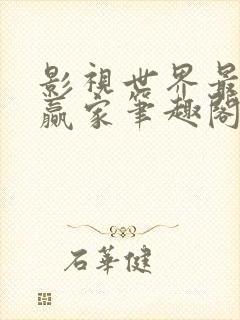 影視世界最
贏家筆趣閣
石華健